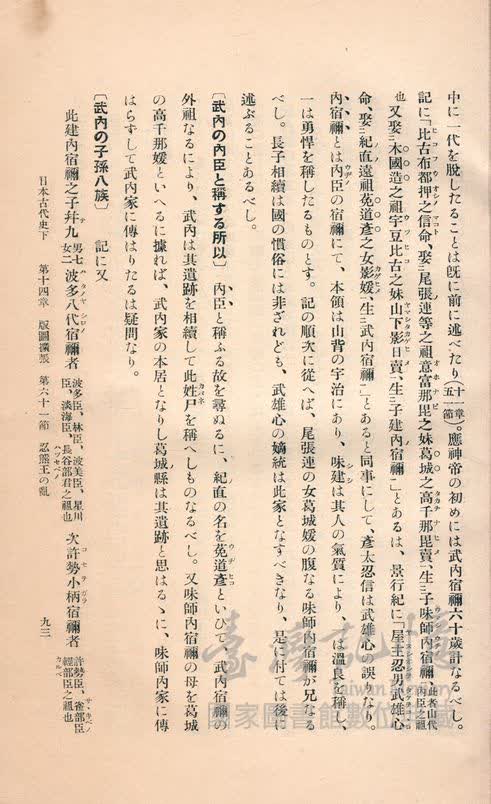 中に一代を脱したることは旣に前に述べたり(十一章五節)。應神帝の初めには武內宿禰六十歲計なるべし。
記に「比古布都押之信命、娶尾張連等之祖意富那毘之妹葛城之高千那毘賣、生子味師內宿禰此者山代內臣之祖
也又娶木國造之祖宇豆比古之妹山下影日賣、生子建內宿禰」とあるは、景行紀に「屋主忍男武雄心
命、娶紀直遠祖菟道彥之女影媛、生武內宿禰」とあると同事にして、彥太忍信は武雄心の誤りなり。
內宿禰とは內臣の宿禰にて、本領は山背の宇治にあり、味建は其人の氣質により、一は溫良を稱し、
一は勇悍を稱したるものとす。記の順次に從へば、尾張連の女葛城媛の腹なる味師內宿禰が兄なる
べし。長子相續は國の慣俗には非ざれども、武雄心の嫡統は此家となすべきなり、是に付ては後に
述ぶることあるべし。
〔武內の內臣と稱する所以〕 內臣と稱ふる故を尋ぬるに、紀直の名を菟道彥といひて、武內宿禰の
外祖なるにより、武內は其遺跡を相續して此姓尸を稱へしものなるべし。又味師內宿禰の母を葛城
の高千那媛といへるに據れば、武內家の本居となりし葛城縣は其遺跡と思はるゝに、味師內家に傳
はらずして武內家に傳はりたるは疑問なり。
〔武內の子孫八族〕 記に又
此建內宿禰之子幷九男七女二波多八代宿禰者波多臣、林臣、波美臣、星川臣、淡海臣、長谷部君之祖也 次許勢小柄宿禰者許勢臣、雀部臣輕部臣之祖也
日本古代史下 第十四章 版圖擴張 第六十一節 忍熊王の亂 九三
臺灣記憶
taiwan
國家圖書館數位典藏